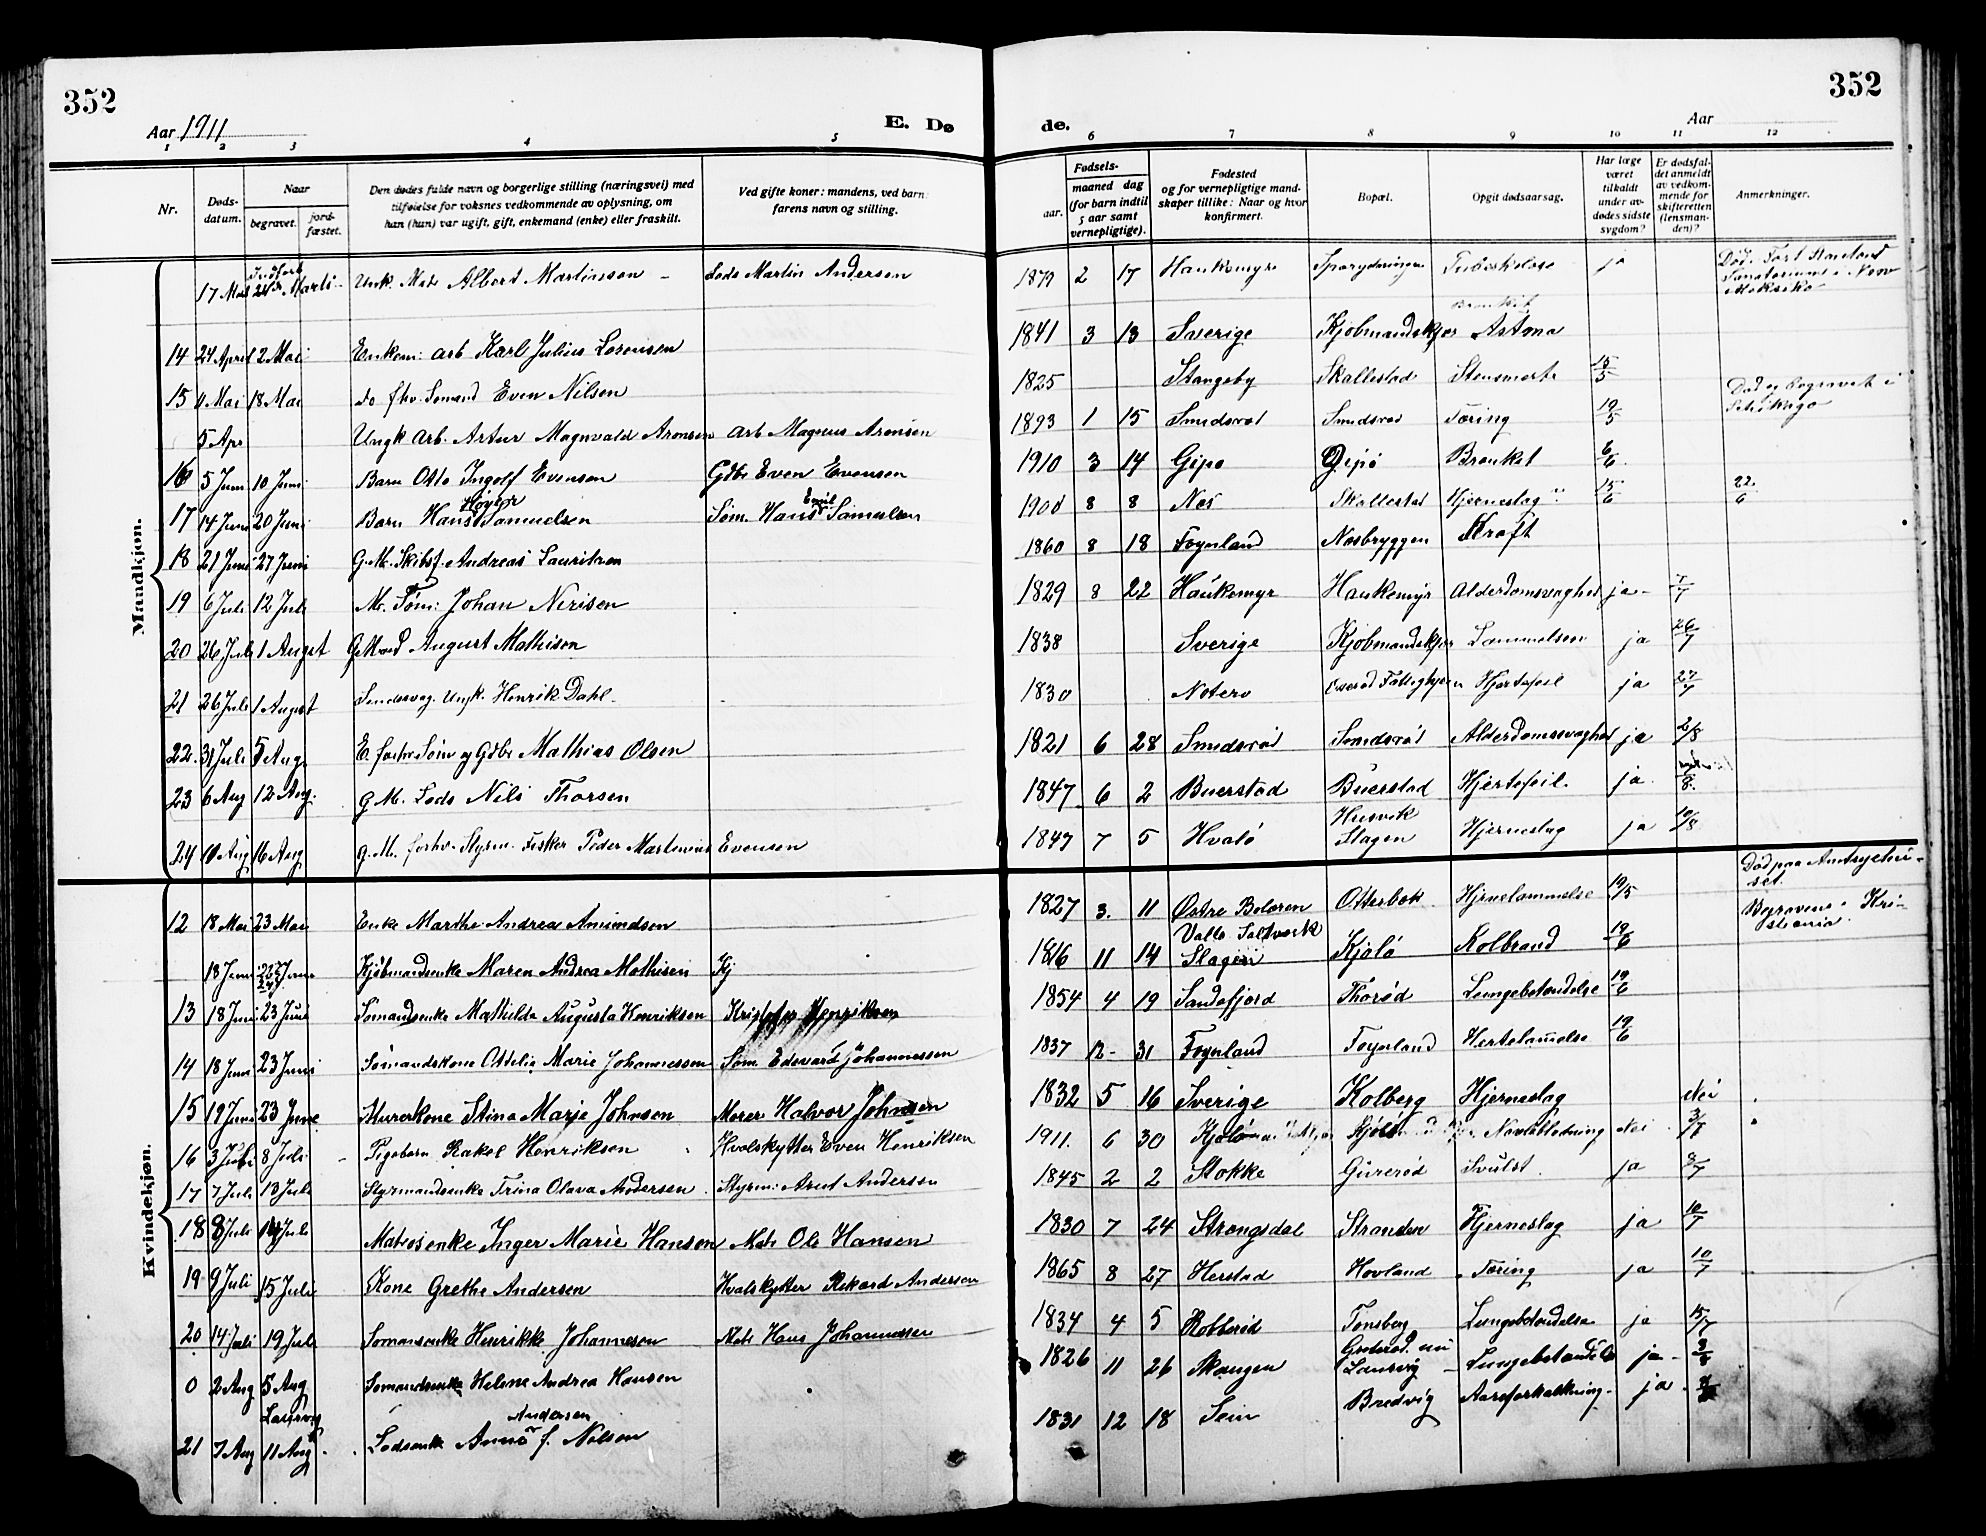 352
352
Aar 1911
E. Dø
de.
Aar
1 2 3 4 5 6 7 8 9 10 11 12
Nr.
Døds-
datum.
Naar
begravet.
jords-
fæstet.
Den dødes fulde navn og borgerlige stilling (næringsvei) med
tilføielse for voksnes vedkommende av oplysning, om
han (hun) var ugift, gift, enkemand (enke) eller fraskilt.
Ved gifte koner: mandens, ved barn:
farens navn og stilling.
Fødsels-
aar.
maaned dag
(for barn indtil
5 aar samt
vernepligtige).
Fødested
og for vernepligtige mand-
skaper tillike: Naar og hvor
konfirmert.
Bopæl.
Opgit dødsaarsag.
Har læge
været
tilkaldt
under av-
dødes sidste
sygdom?
Er dødsfal-
det anmeldt
av vedkom-
mende for
skifteretten
(lensman-
den)?
Anmerkninger.
Mandkjøn.
17 Mars 24 Marts Unk. Mats Albert Martinsen Lods Martin Andersen 1879 2 17 Haukemyr Tuberkelose ja Død. Fort Stanton Sanatorium i New Meksiko
14 24 April 2 Mai Enkem: arb Karl Julius Lorensen 1841 3 13 Sverige Kjøbmandskjær Bronkit Astma
15 11 Mai 18 Mai do fhv. Sømand Even Nilsen 1825 Stangeby Skallestad Stensmerte 15/5
5 Apr Ungk arb. Artur Magnvald Aronsen arb Magnus Aronsen 1893 1 15 Smidsrød Smidsrød Tæring 19/5 Død og begravet i Schikago
16 5 Juni 10 Juni Barn Otto Ingolf Evensen Gdbr Even Evensen 1910 3 14 Gipø Gipø Bronket 6/6
17 14 Juni 20 Juni Barn Hans Høger Samuelsen Søm. Hans Emil Samuelsen 1908 8 8 Nes Skallestad Hjerneslag 15/6 22/6
18 21 Juni 27 Juni G.M. Skibsf. Andreas Lauritzen 1860 8 18 Føynland Nesbryggen Kræft
19 6 Juli 12 Juli M. Tøm: Johan Nerisen 1829 8 22 Haukemyr Haukemyr Alderdomsvaghet ja 7/7
20 26 Juli 1 August August Mathisen 1838 Sverige Kjøbmandskjær Lammelsen ja 26/7
21 26 Juli 1 August Ungk. Henrik Dahl 1830 Noterø Hjertefeil ja 27/7
22. 31 Juli 5 Aug. E. forhv Søm og Gdbr Mathias Olsen 1821 6 28 Smidsrød Smidsrød Alderdomssvaghet ja 2/8
23 6 Aug 12 Aug. G.M. Lods Nils Thorsen 1847 6 2 Buerstad Buerstad Hjertefeil. ja 8.
24 10 Aug 16 Aug G.M. forhv. Styrm. Fisker Peder Martinius Evensen 1847 7 5 Hvalø Husvik Slagen Hjerneslag ja 10/8
Kvindekjøn.
12 18 Mai 23 Mai Enke Marthe Andrea Amundsen 1827 3. 11 Østre Bolæren Otterbek Hjernelammelse 19/5 Død paa Amtsygehuset.
18 Juni 24 Juni Kjøbmandsenke Maren Andrea Mathisen Kj 1816 11 14 Vallø Saltverk Slagen Kjølø Kolbrand 19/6 Begravens i Kristiania
13 18 Juni 23 Juni Sømandsenke Mathilde Augusta Henriksen Kristofer Henriksen 1854 4 19 Sandefjord Thorød Lungebetendelse 19/6
14 18 Juni 23 Juni Sømandskone Ottilie Marie Johannessen Søm. Edevard Johannessen 1837 12 31 Føynland Føynland Hertelammelse 19/6
15 19 Juni 23 June Murerkone Stina Marje Johnsen Murer Halvor Johnsen 1832 5 16 Sverige Kolberg Hjerneslag Nei
16 3 Juli 8 Juli Pigebarn Rakel Henriksen Hvalskytter Even Henriksen 1911. 6 30 Kjølø Kjølø Navleblødning Nei 3/7
17 7 Juli 13 Juli Styrmandsenke Trina Olava Andersen Styrm: Arnt Andersen 1845 2 2 Stokke Gurerød Svulst ja 8/7
18 8 Juli 14 Juli Matrosenke Inger Marie Hansen Mats Ole Hansen 1830 7 24 Strengsdal Stranden Hjerneslag ja 10/7
19 9 Juli 15 Juli Kone Grethe Andersen Hvalskytter Rikard Andersen 1865 8 27 Herstad Hovland Tæring ja 10/7
20 14 Juli 19 Juli Sømansenke Henrikke Johannesen Mats Hans Johannessen 1834 4 5 Robberød Tønsberg Lungebetendelse ja 15/7
0 2 Aug 5 Aug Laurvig Sømandsenke Helene Andrea Hansen 1826 11 26 Skougen Grøterød nu Laurvig Lungebetendelse ja 3/8
21 7 Aug 11 Aug Lodsenke Anne Andersen f. Nilsen 1831 12 18 Sem Bredvig Aareforkalkning ja